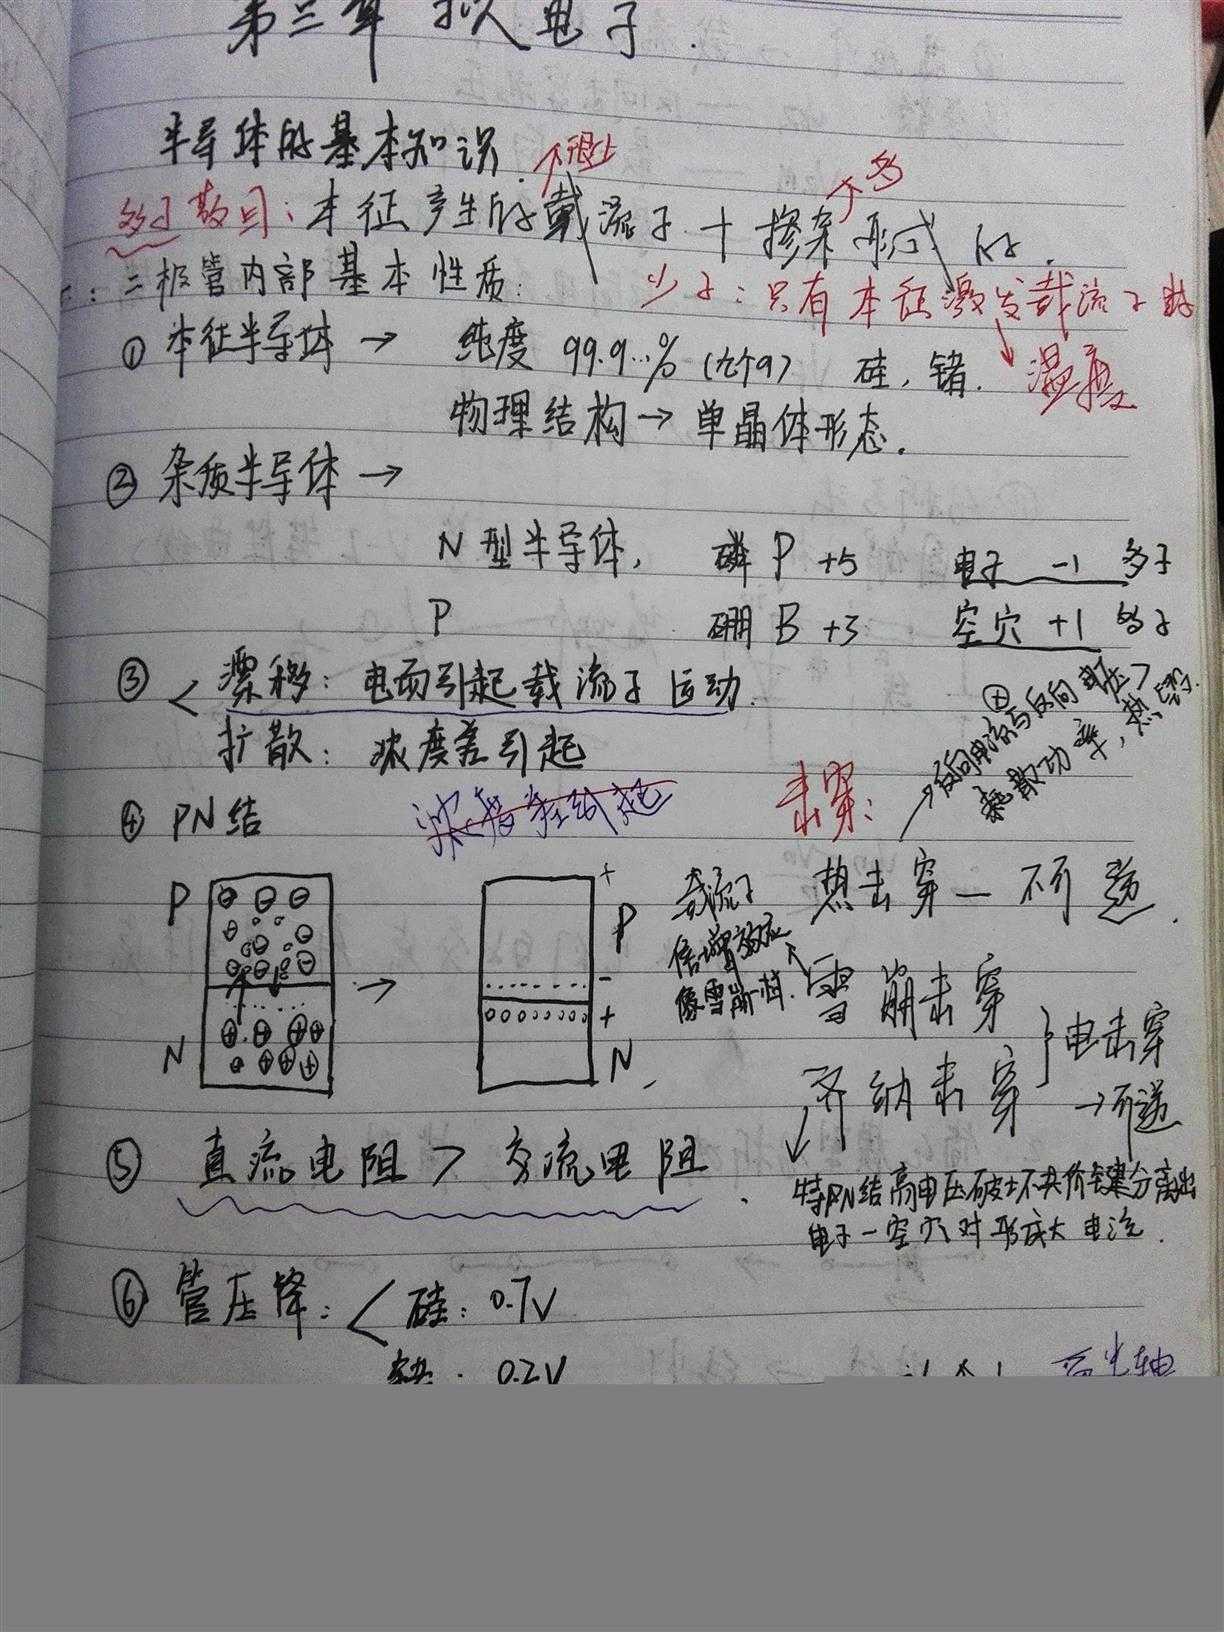 第三章 拟电子.
半导体的基本知识.
很少
多
多子数目: 本征产生的戴流子 + 掺杂形成的.
一: 二极管内部基本性质:
少子: 只有本征激发载流子
温度
① 本征半导体 → 纯度 99.9...% (九个9) 硅, 锗.
物理结构 → 单晶体形态.
② 杂质半导体 →
N型半导体, 磷 P +5 电子 -1 多子
P 硼 B +3 空穴 +1 多子
③ < 漂移: 电场引起载流子运动.
扩散: 浓度差引起
④ PN结
击穿:
→反向电流与反向电压>
散功率, 热
热击穿 — 不可逆.
载流子
倍增效应
像雪崩一样.
雪崩击穿
齐纳击穿
} 电击穿
→ 可逆
P
N
→
+
P
-
+
N
特PN结高电压破坏共价键分离出
电子-空穴对形成大电流.
⑤ 直流电阻 > 交流电阻.
⑥ 管压降: < 硅: 0.7V
锗: 0.2V